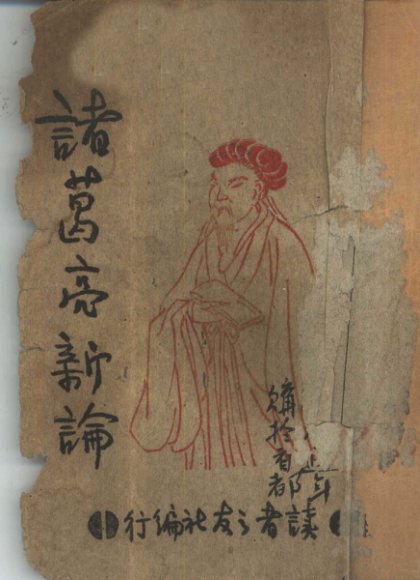 諸葛亮新論
購於首都
讀者之友社編行